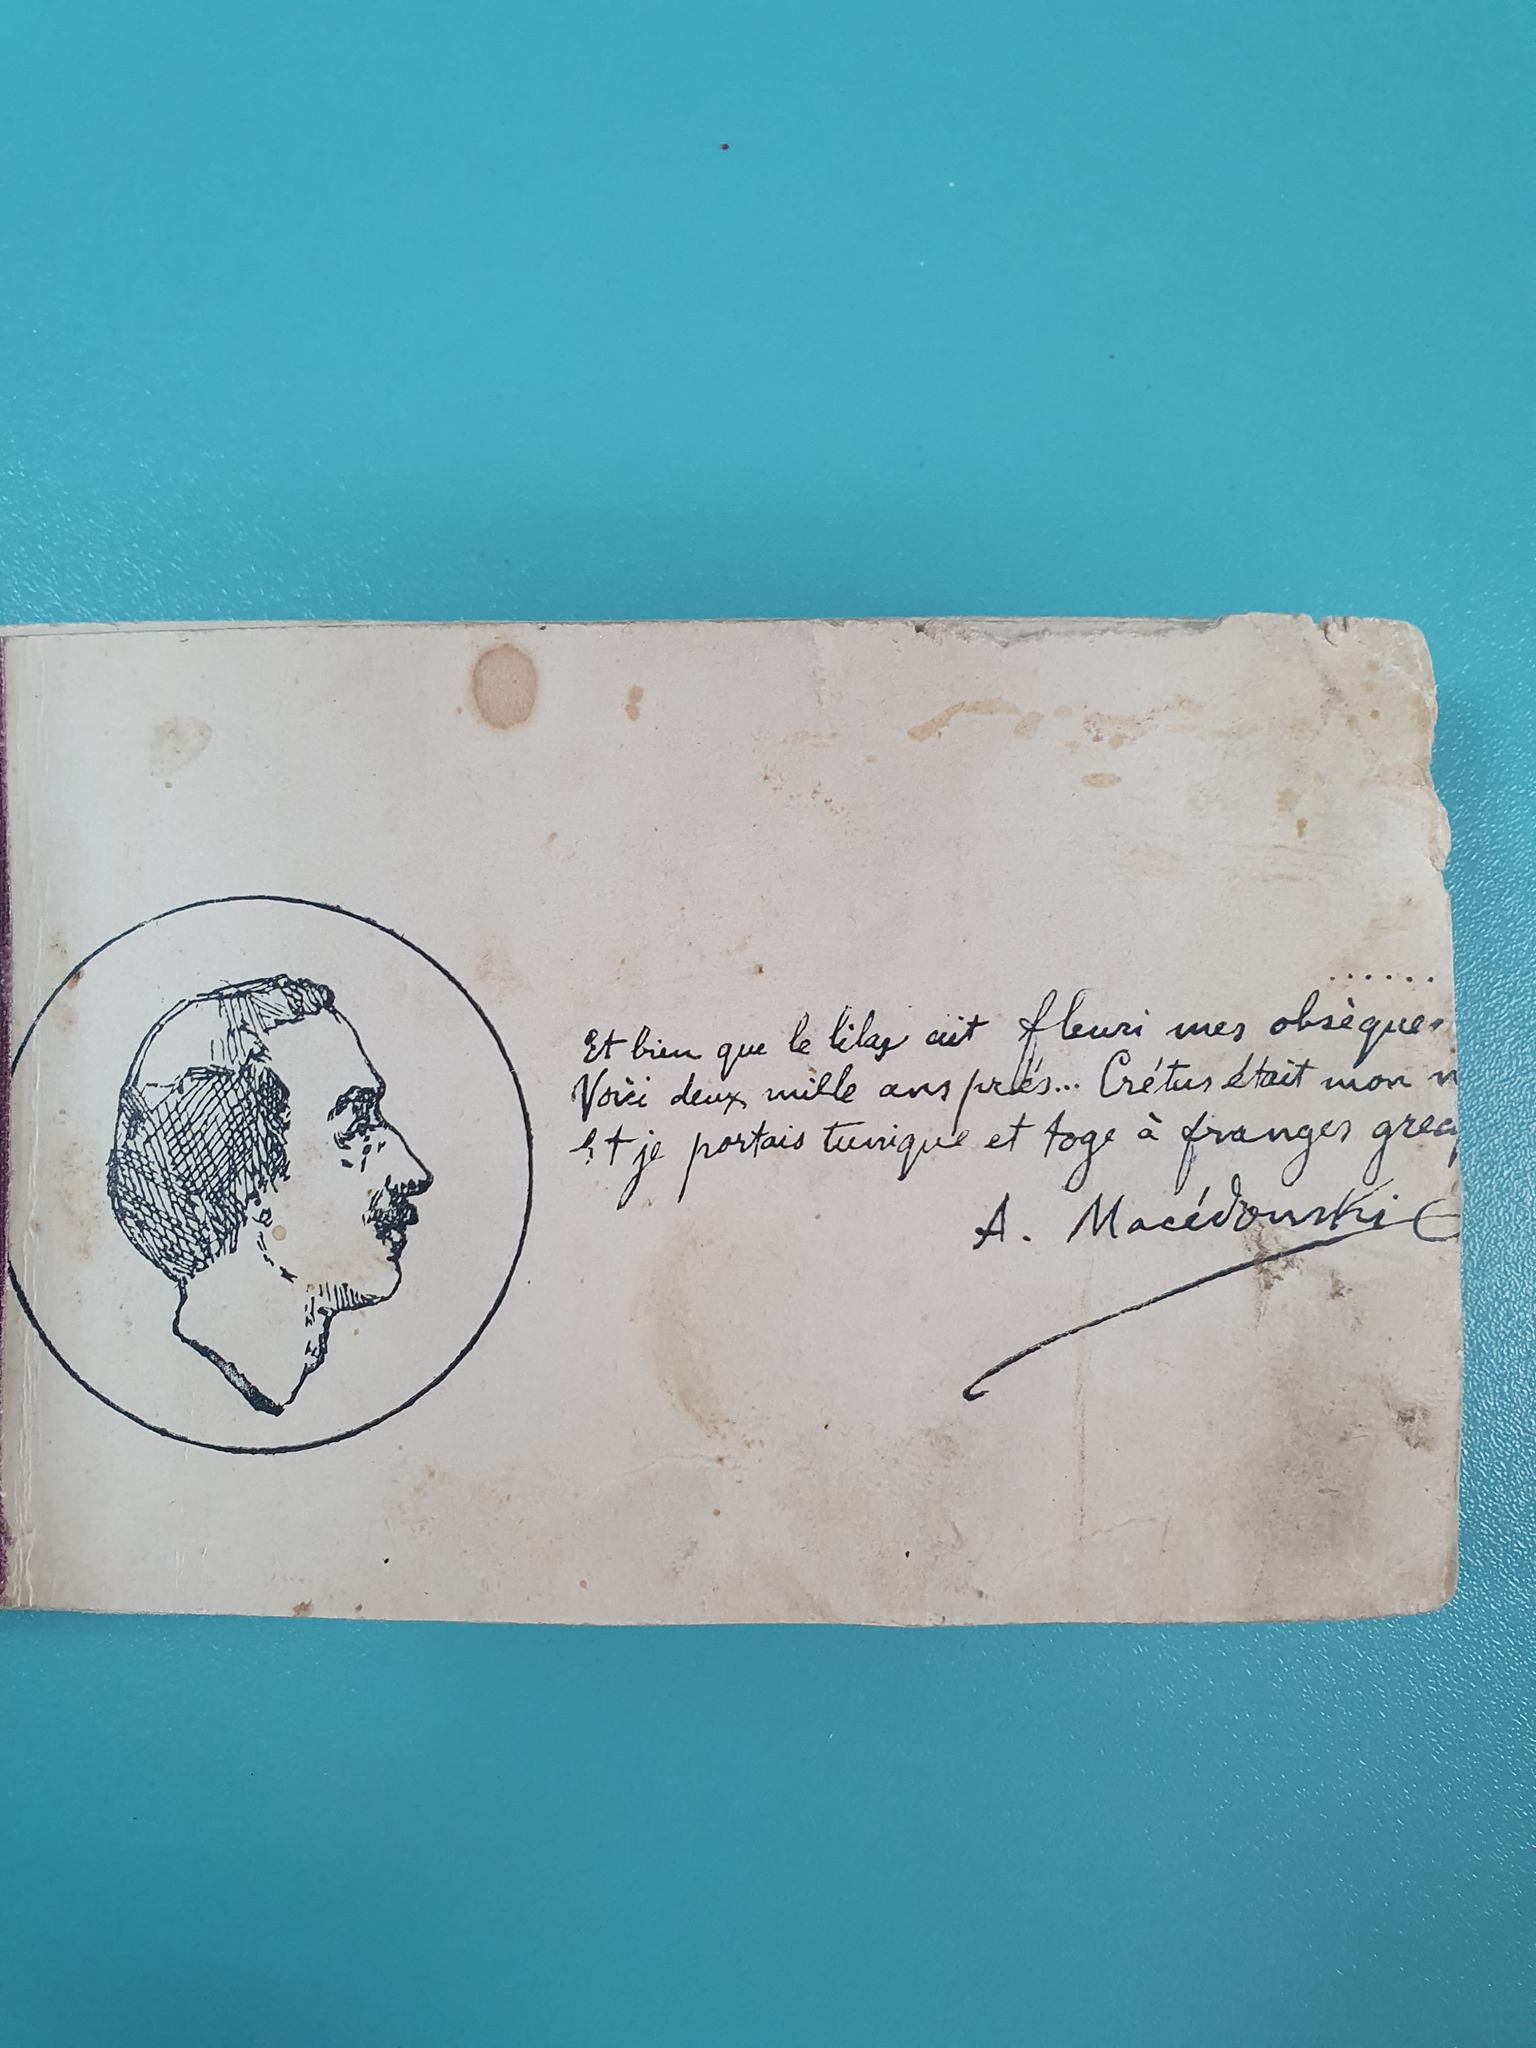 ......
Et bien que le lilas ait fleuri mes obsèques
Voici deux mille ans près... Crétus était mon n
Et je portais tunique et toge à franges grecq
A. Macédonski